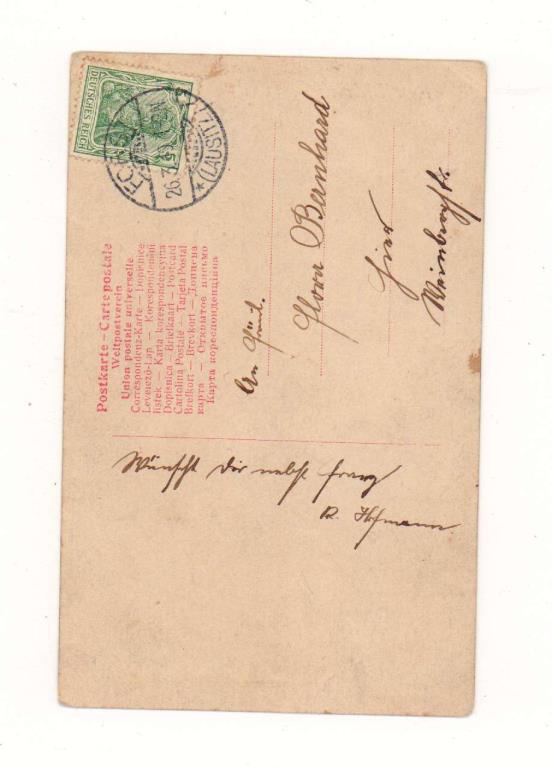 DEUTSCHES REICH
5
(LAUSITZ)
26.3.
Postkarte – Carte postale
Weltpostverein
Union postale universelle
Correspondenz-Karte – Dopisnice
Levelező-Lap – Korespondenční
lístek – Karta korespondencyjna
Dopisnica – Briefkaart – Postcard
Cartolina Postale – Tarjeta Postal
Brefkort – Brevkort – Дописна
карта – Открытое письмо
Карта кореспонденцина
An Fräul.
Flora Bernhard
Hier
Weinbergstr.
Wünscht Dir nebst
R. Hofmann